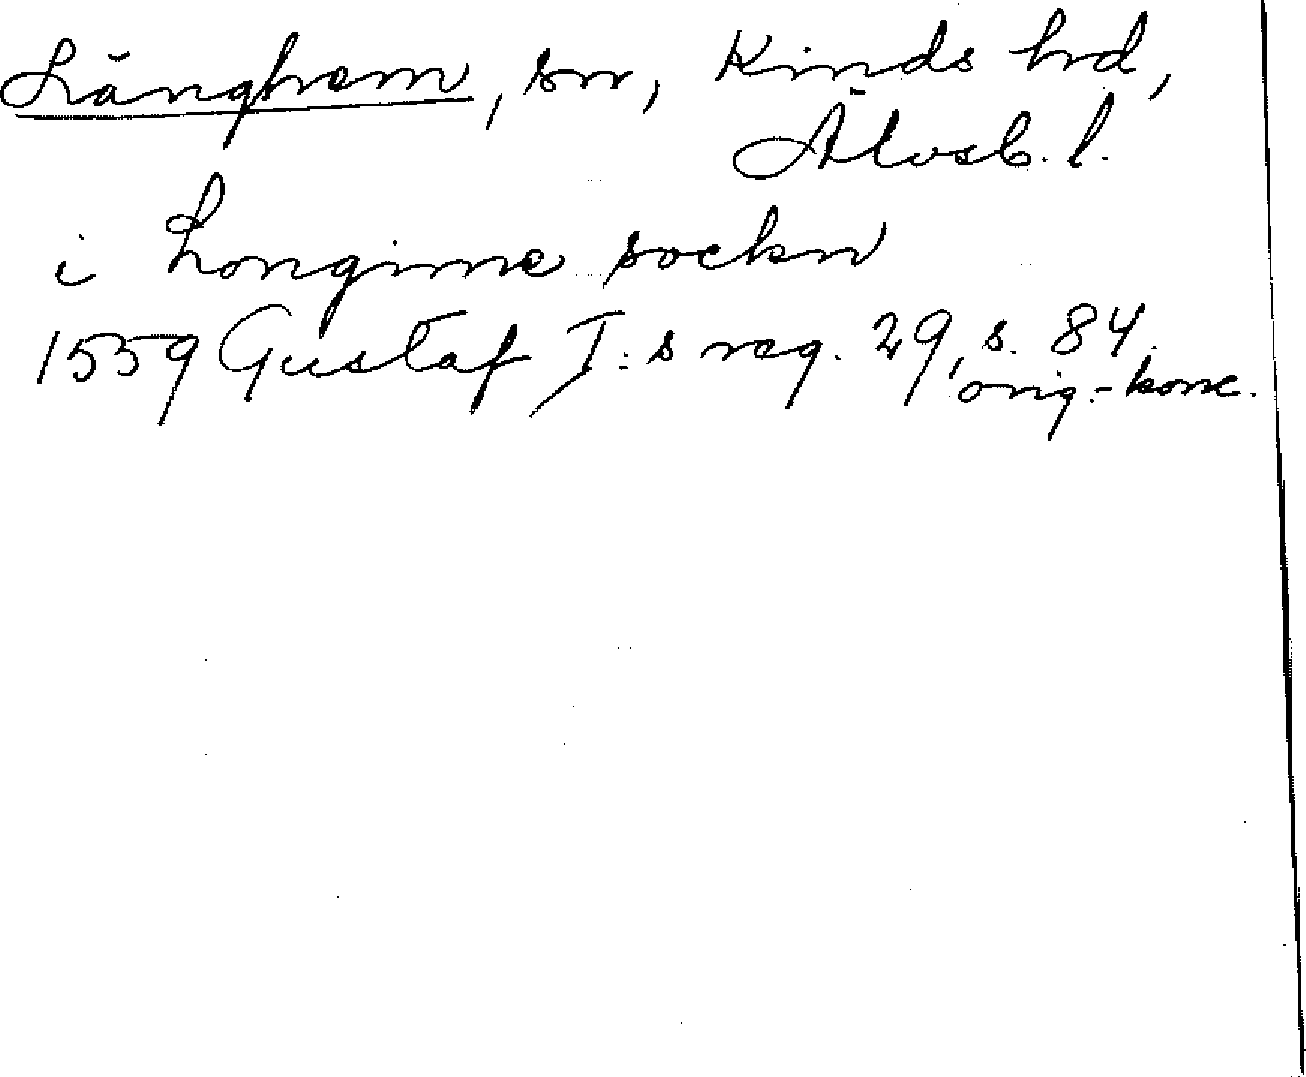 Länghem, sn, Kinds hd,
Älvsb. l.
i Longime sockn
1559 Gustaf I:s reg. 29, s. 84.
orig.-konc.